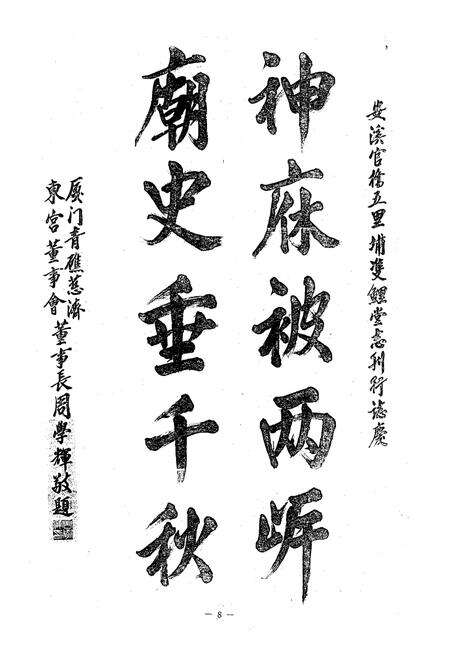 安溪官橋五里埔雙鯉堂志刊行誌慶
神庥被两岸
廟史垂千秋
厦门青礁慈濟
東宫董事會董事長周學輝敬題
— 8 —